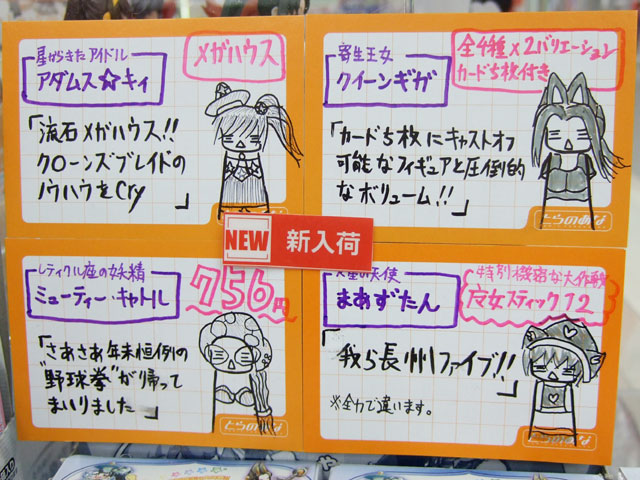 星からきたアイドル
アダムス☆キィ
メガハウス
「流石メガハウス!!
クローンズブレイドの
ノウハウをCry」
とらのあな
寄生王女
クイーンギガ
全4種×2バリエーション
カード5枚付き
「カード5枚にキャストオフ
可能なフィギュアと圧倒的
なボリューム!!」
とらのあな
NEW 新入荷
レティクル座の妖精
ミューティー・キャトル
756円
「さあさあ年末恒例の
"野球拳"が帰って
まいりました」
とらのあな
の天使
まあずたん
特別機密な大作戦
女スティック12
「我ら長州ファイブ!!」
※全力で違います。
とらのあな